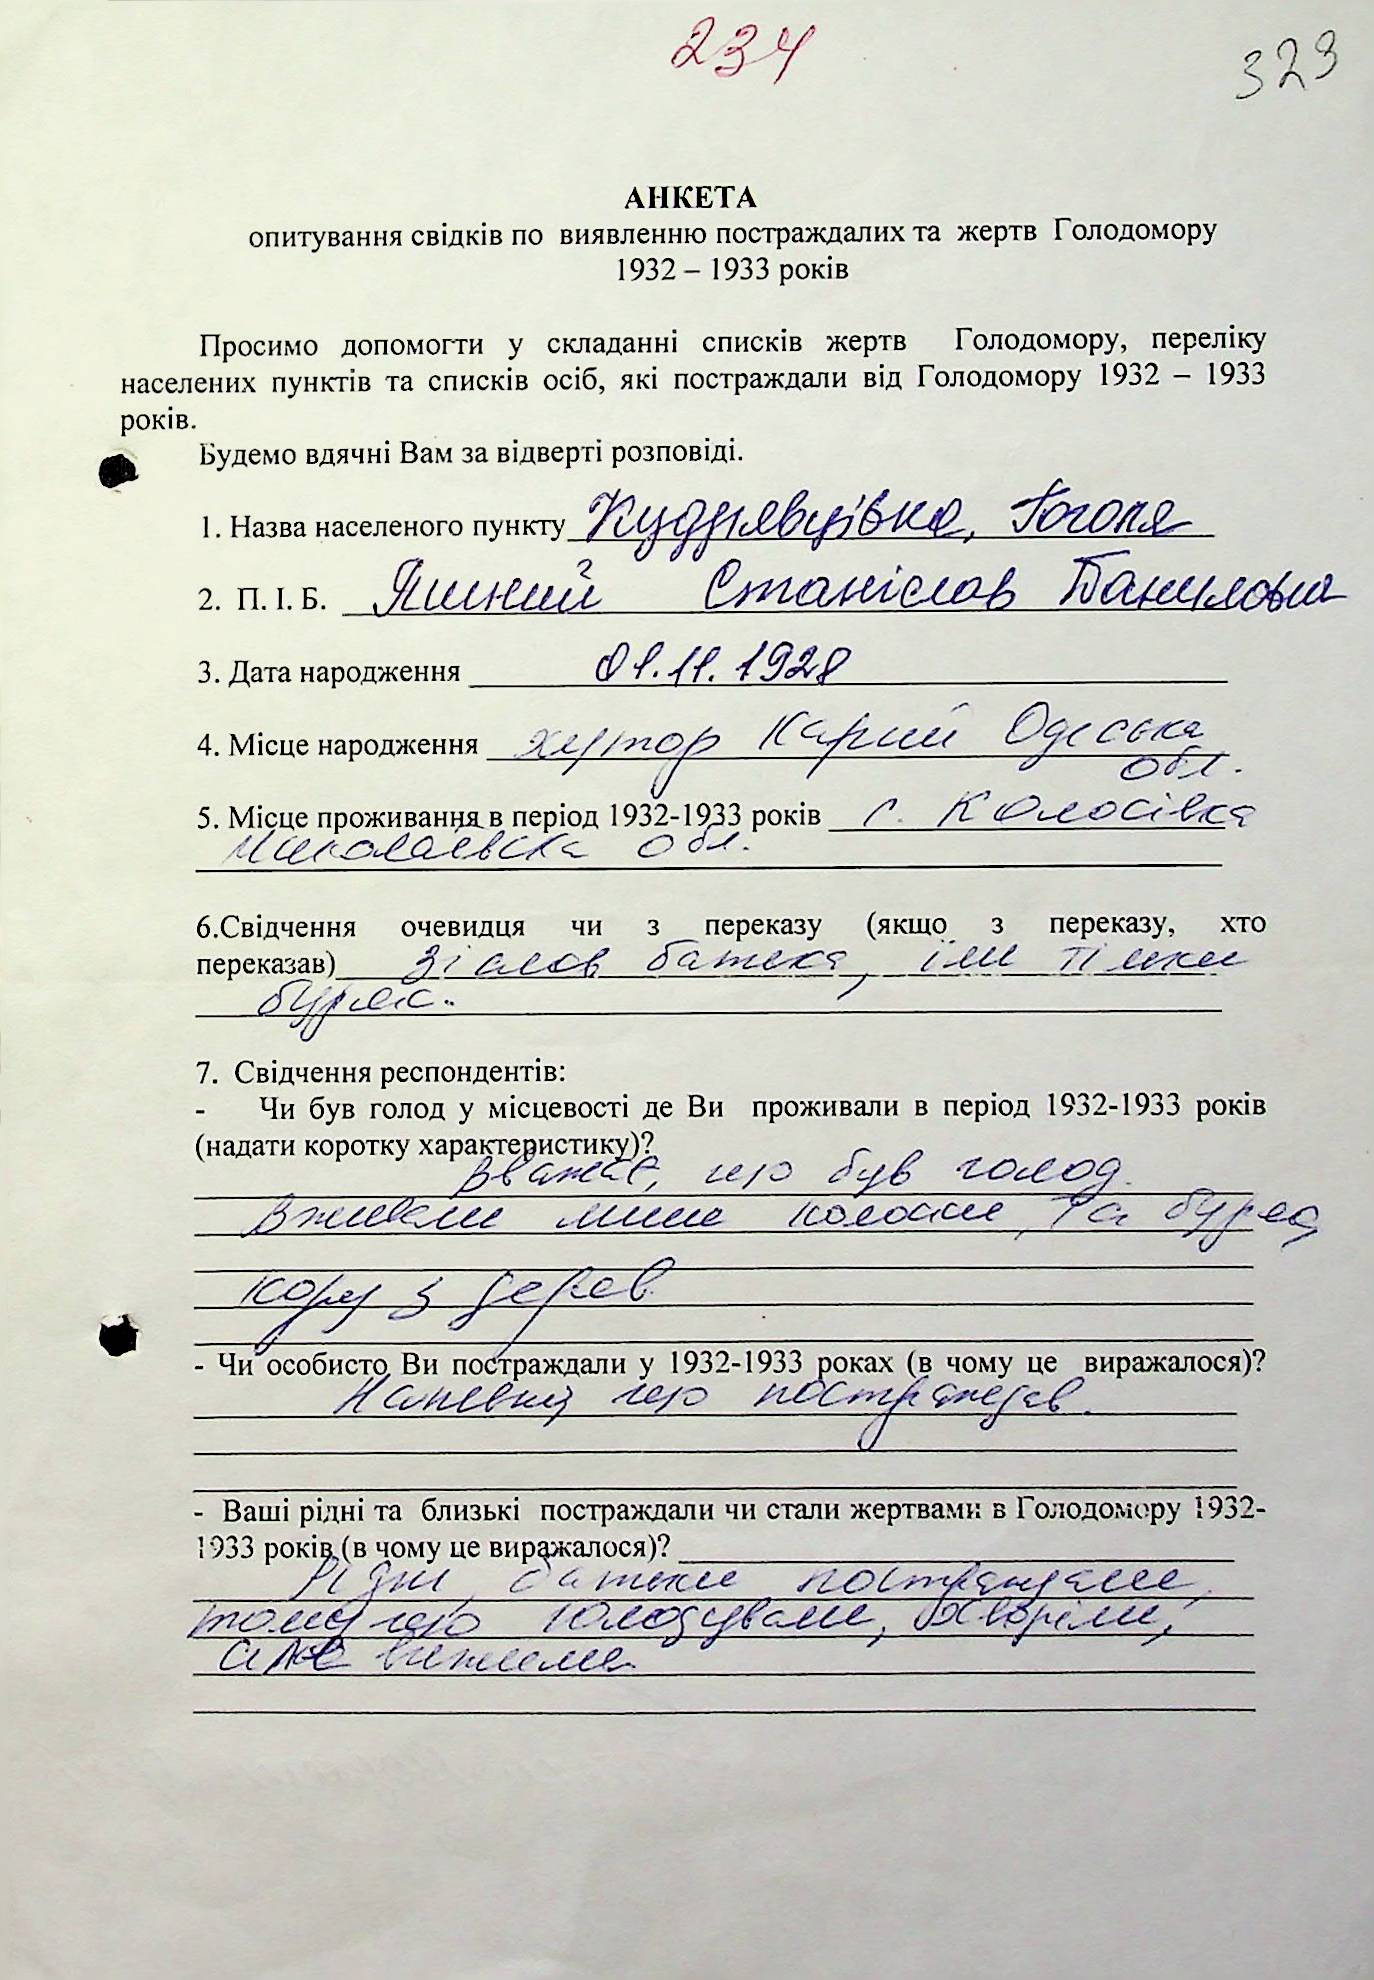 234
323
АНКЕТА
опитування свідків по виявленню постраждалих та жертв Голодомору
1932 – 1933 років
Просимо допомогти у складанні списків жертв Голодомору, переліку
населених пунктів та списків осіб, які постраждали від Голодомору 1932 – 1933
років.
Будемо вдячні Вам за відверті розповіді.
1. Назва населеного пункту Кудрявцівка, Гоголя
2. П. І. Б. Станіслав
3. Дата народження 01.11.1928
4. Місце народження хутор Карий Одеська
обл.
5. Місце проживання в період 1932-1933 років с. Колосівка
Миколаївська обл.
6.Свідчення очевидця чи з переказу (якщо з переказу, хто
переказав) Зі слов батька, їли тільки
буряк.
7. Свідчення респондентів:
- Чи був голод у місцевості де Ви проживали в період 1932-1933 років
(надати коротку характеристику)?
Вважає, що був голод.
Вживали лише колоски, та буряк,
кору з дерев.
- Чи особисто Ви постраждали у 1932-1933 роках (в чому це виражалося)?
що постраждав.
- Ваші рідні та близькі постраждали чи стали жертвами в Голодомору 1932-
1933 років (в чому це виражалося)?
Рідні, батьки постраждали,
тому що голодували, хворіли,
але вижили.